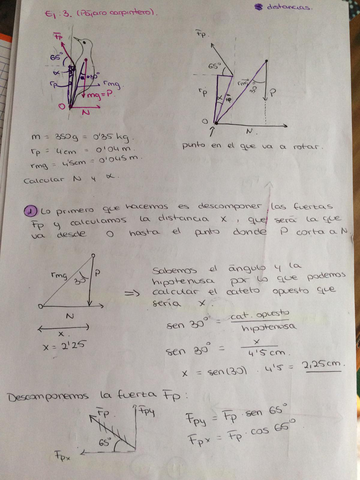 Ej. 3. (Pájaro carpintero).
distancias.
F̄p
65º
α
rp
30º
rmg
mg = P
O
N
F̄p
65º
rp
α
rmg
30º
P
O
N.
m = 350g = 0'35 kg.
rp = 4cm = 0'04 m
rmg = 4'5cm = 0'045 m.
Calcular N y α.
punto en el que va a rotar.
1 Lo primero que hacemos es descomponer las fuerzas
F̄p y calculamos la distancia x, que será la que
va desde O hasta el punto donde P corta a N
rmg
30º
P
O
N
x
x = 2'25
⇒
Sabemos el ángulo y la
hipotenusa por lo que podemos
calcular el cateto opuesto que
sería x.
sen 30º = cat. opuesto / hipotenusa
sen 30º = x / 4'5 cm.
x = sen(30) 4'5 = 2,25cm.
Descomponemos la fuerza F̄p:
F̄p
F̄py
65º
F̄px
F̄py = F̄p sen 65º
F̄px = F̄p cos 65º